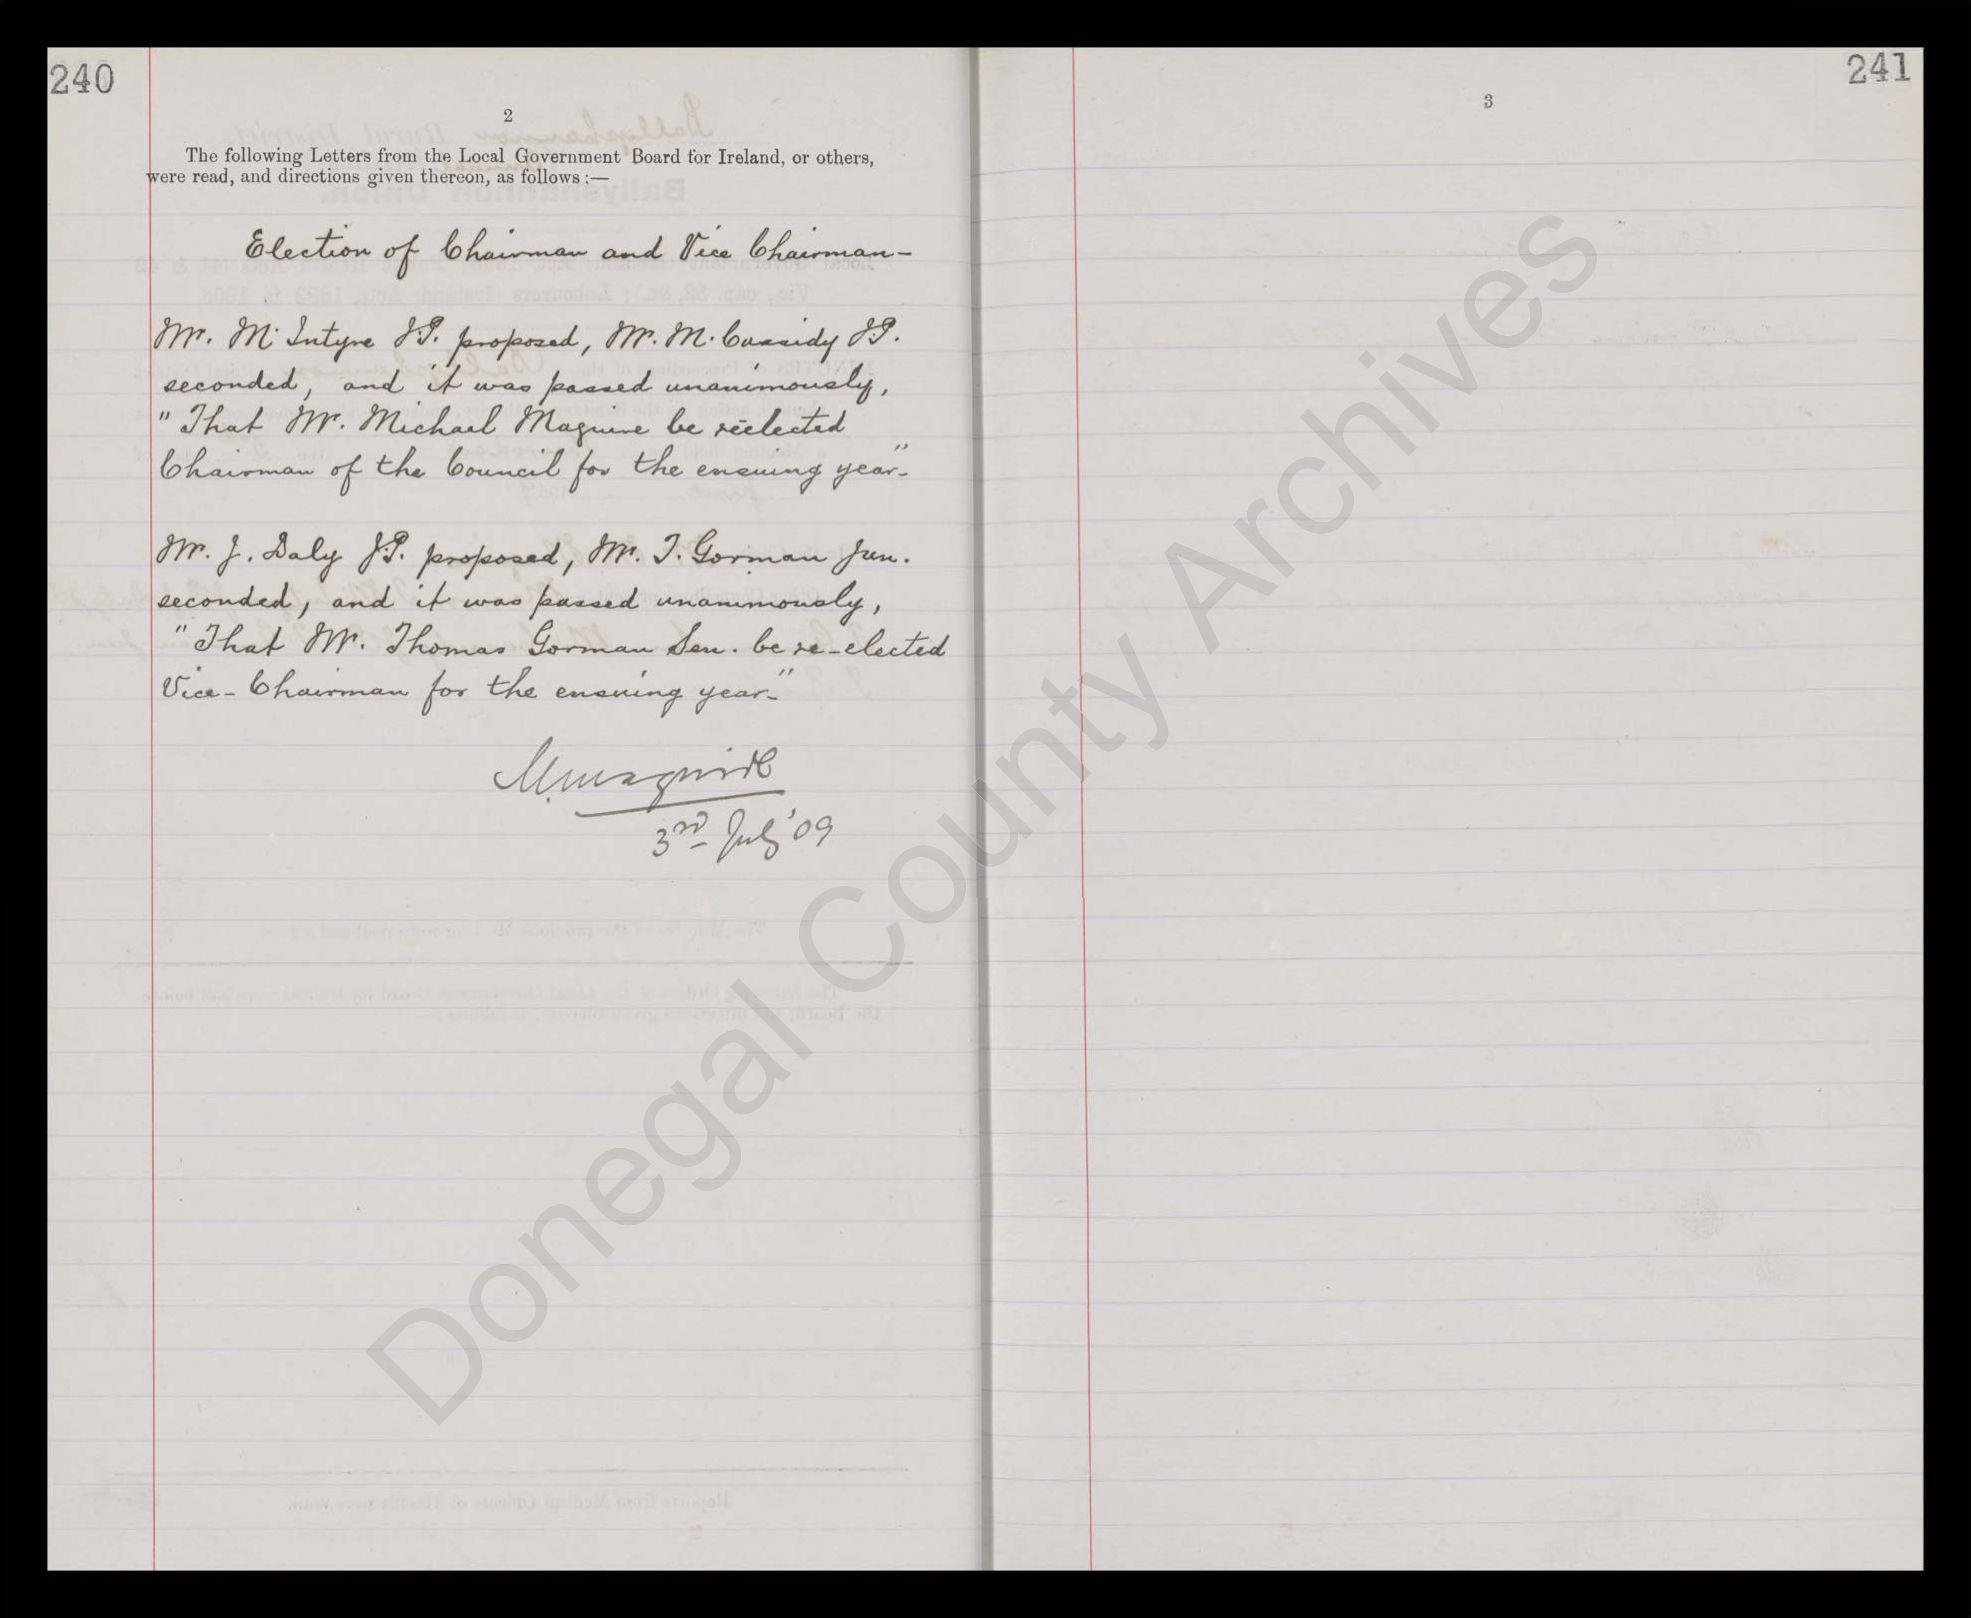 240
2
The following Letters from the Local Government Board for Ireland, or others,
were read, and directions given thereon, as follows :—
Election of Chairman and Vice Chairman-
Mr. McIntyre J.P. proposed, Mr. M. Cassidy J.P.
seconded, and it was passed unanimously,
"That Mr. Michael Maguire be reëlected
Chairman of the Council for the ensuing year-"
Mr. J. Daly J.P. proposed, Mr. T. Gorman Jun.
seconded, and it was passed unanimously,
"That Mr. Thomas Gorman Sen. be re-elected
Vice-Chairman for the ensuing year-"
M. Maguire
3rd July '09
241
3
Donegal County Archives